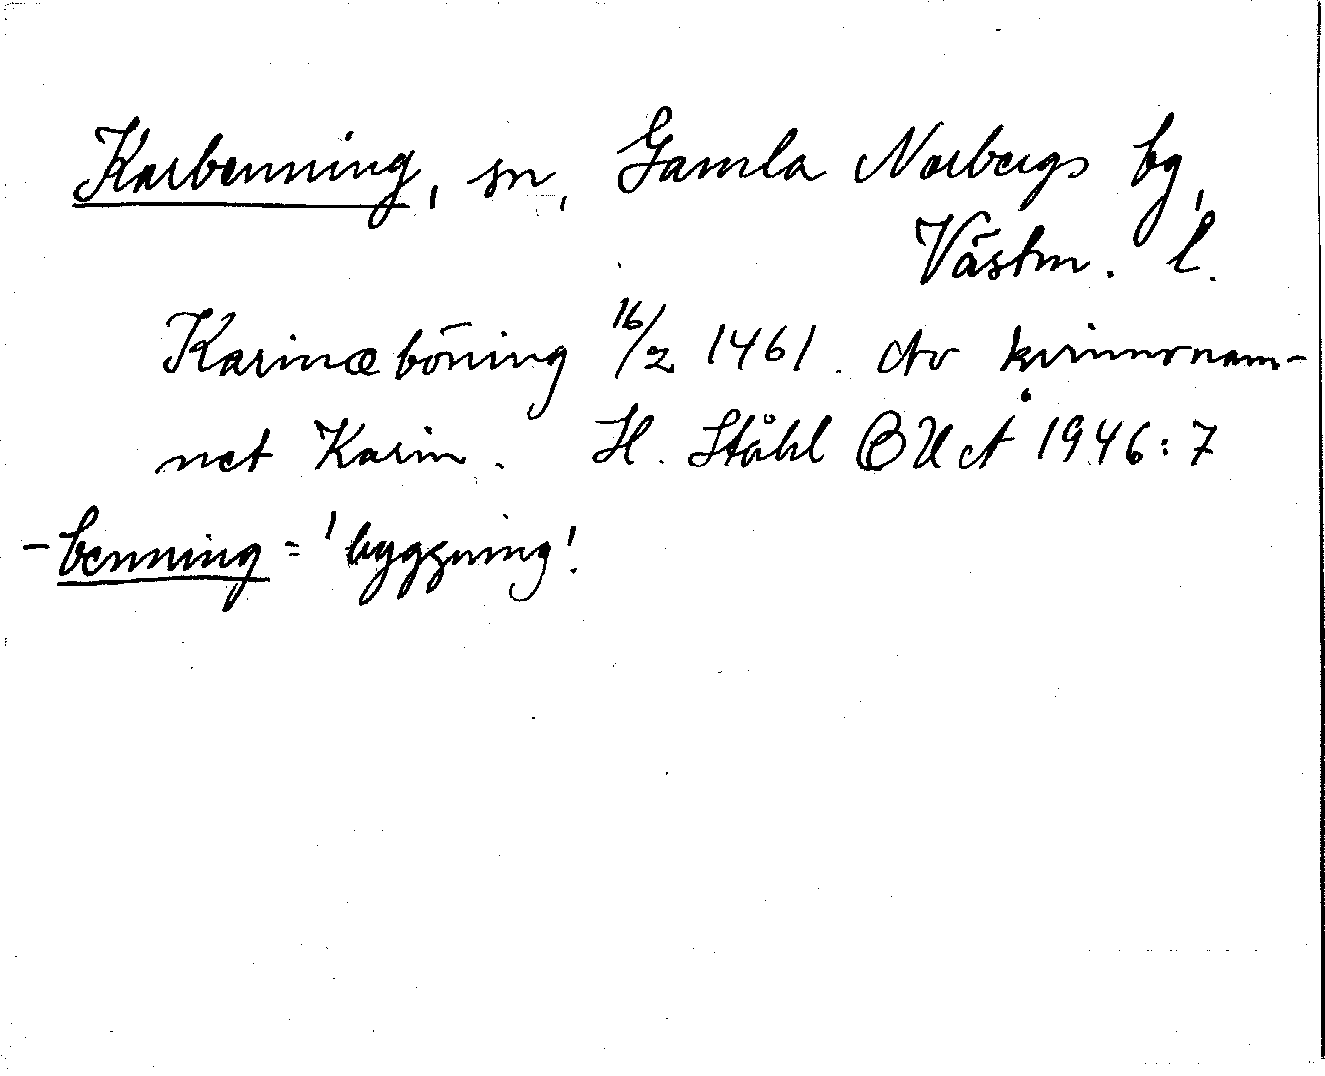 Karbenning, sn, Gamla Norbergs bg,
Västm. l.
Karinæbōning 16/2 1461. Av kvinnonam-
net Karin. H. Ståhl BUÅ 1946:7
-benning = 'byggning'.